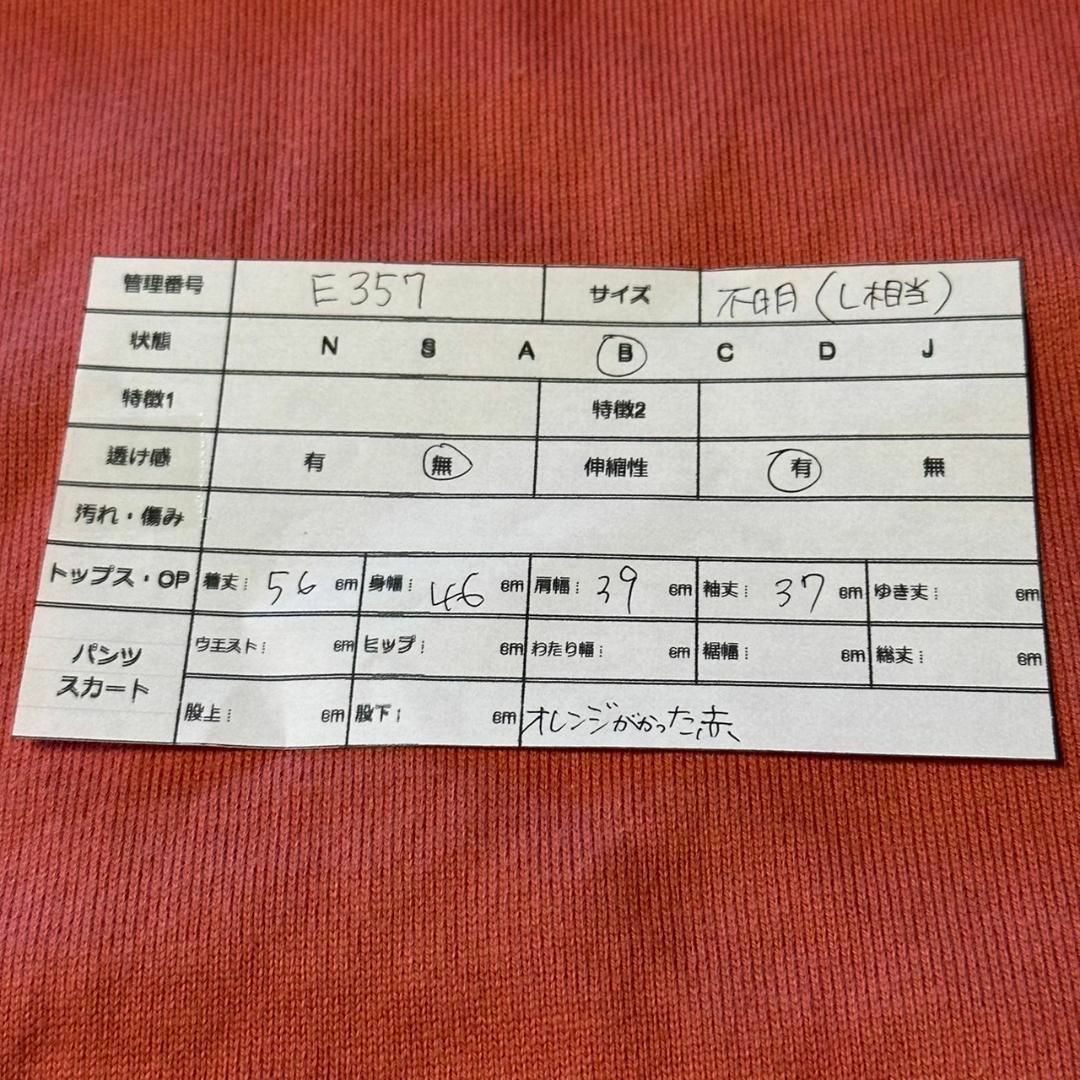 管理番号 E357 サイズ 不明(L相当)
状態 N S A B C D J
特徴1 特徴2
透け感 有 無 伸縮性 有 無
汚れ・傷み
トップス・OP 着丈: 56 cm 身幅: 46 cm 肩幅: 39 cm 袖丈: 37 cm ゆき丈: cm
パンツ スカート ウエスト: cm ヒップ: cm わたり幅: cm 裾幅: cm 総丈: cm
股上: cm 股下: cm オレンジがかった赤